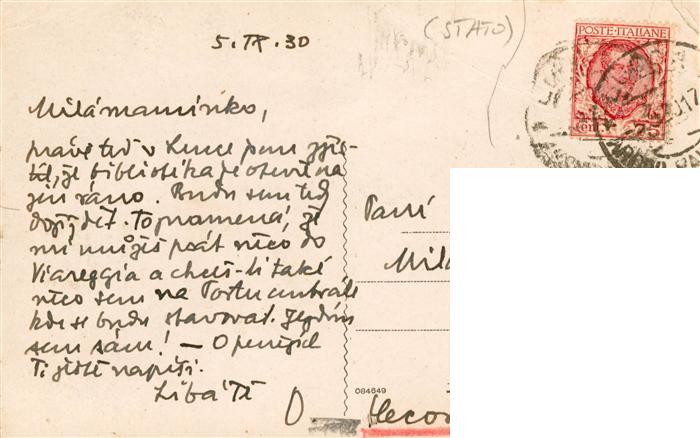 5. IX. 30
(STATO)
POSTE ITALIANE
Cent 75
Milá maminko,
právě teď v Lucce jsem zjis-
til, že bibliotéka je otevřena
jen ráno. Budu sem tedy
dojíždět. To znamená, že
mi můžeš psát něco do
Viareggia a chceš-li také
něco sem na Postu centrále
kde se budu stavovat. Jezdím
sem sám! — O penězích
Ti ještě napíši.
Líbá Tě
Paní
Mil
084649